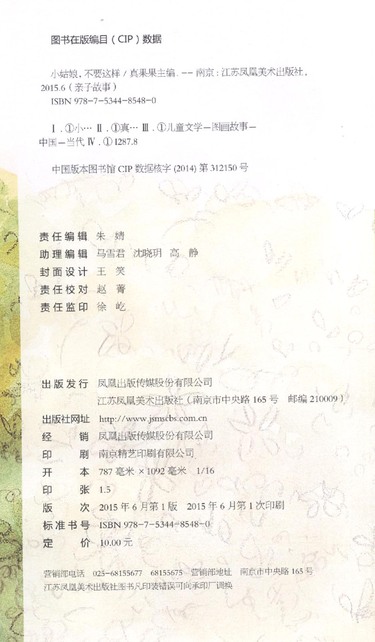 图书在版编目(CIP)数据
小姑娘,不要这样/真果果主编. -- 南京:江苏凤凰美术出版社,
2015.6(亲子故事)
ISBN 978-7-5344-8548-0
Ⅰ.①小… Ⅱ.①真… Ⅲ.①儿童文学—图画故事—
中国—当代 Ⅳ.①I287.8
中国版本图书馆CIP数据核字(2014)第312150号
责任编辑 朱 婧
助理编辑 马雪君 沈晓玥 高 静
封面设计 王 笑
责任校对 赵 菁
责任监印 徐 屹
出版发行 凤凰出版传媒股份有限公司
江苏凤凰美术出版社(南京市中央路165号 邮编210009)
出版社网址 http://www.jsmscbs.com.cn
经 销 凤凰出版传媒股份有限公司
印 刷 南京精艺印刷有限公司
开 本 787毫米×1092毫米 1/16
印 张 1.5
版 次 2015年6月第1版 2015年6月第1次印刷
标准书号 ISBN 978-7-5344-8548-0
定 价 10.00元
营销部电话 025-68155677 68155675 营销部地址 南京市中央路165号
江苏凤凰美术出版社图书凡印装错误可向承印厂调换